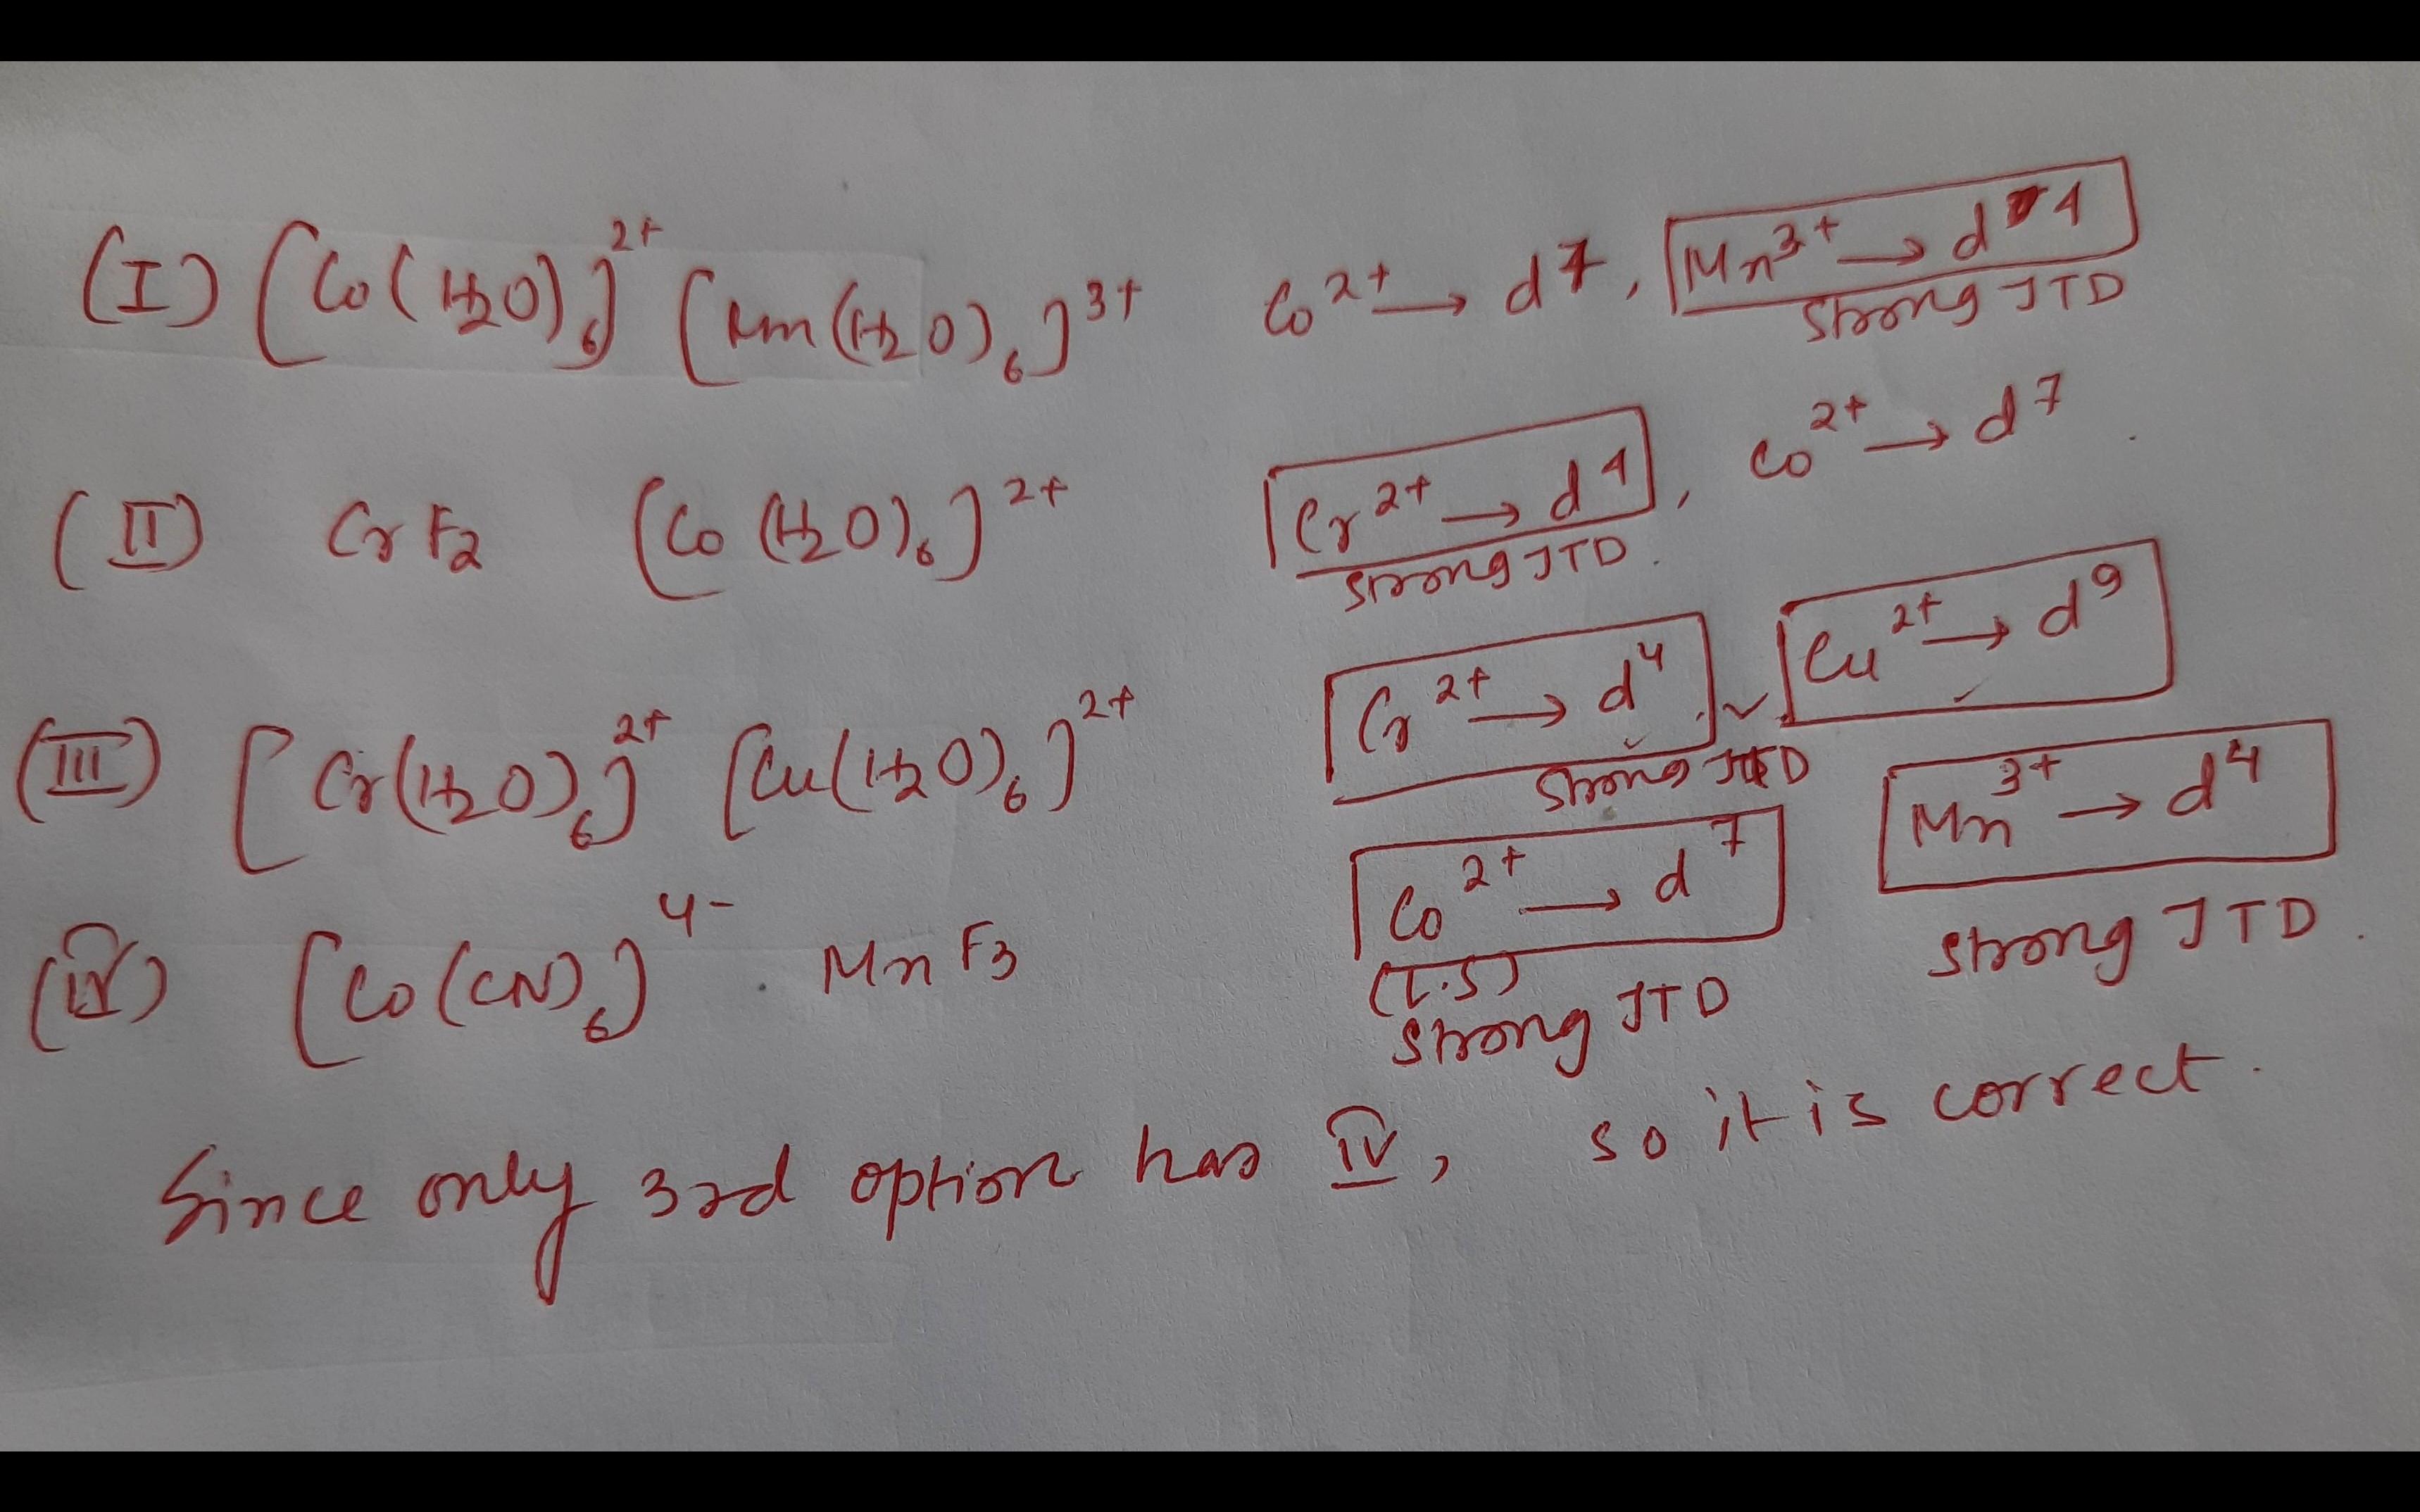 (I) [Co(H2O)6]2+ [Mn(H2O)6]3+ Co2+ → d7, Mn3+ → d4
strong JTD
(II) CrF2 [Co(H2O)6]2+ Cr2+ → d4, Co2+ → d7
strong JTD.
(III) [Cr(H2O)6]2+ [Cu(H2O)6]2+ Cr2+ → d4 Cu2+ → d9
strong JTD
(IV) [Co(CN)6]4- . MnF3 Co2+ → d7 Mn3+ → d4
(L.S)
strong JTD strong JTD.
Since only 3rd option has IV, so it is correct.